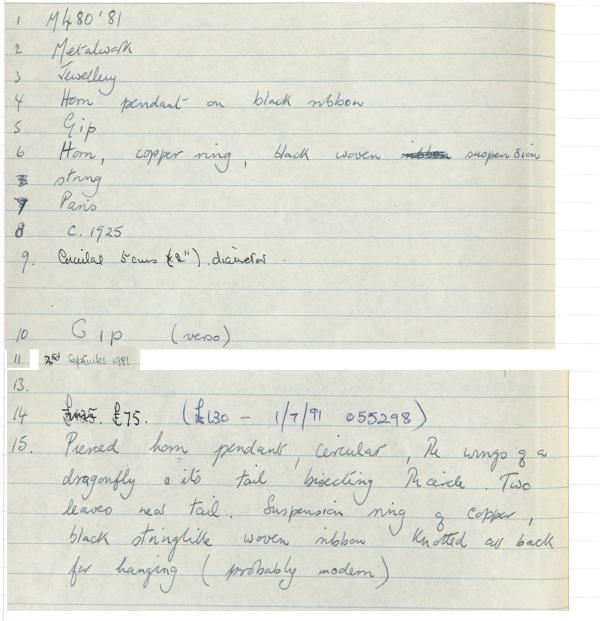 1 M480'81
2 Metalwork
3 Jewellery
4 Horn pendant on black ribbon
5 Gip
6 Horn, copper ring, black woven ribbon suspension
string
7 Paris
8 c. 1925
9. Circular 5cms (2"). diameter.
10 Gip (verso)
11 2nd September 1981
13.
14 £125. £75. (£130 - 1/7/91 055298)
15. Pierced horn pendant, circular, The wings of a
dragonfly & its tail bisecting The circle. Two
leaves near tail. Suspension ring of copper,
black stringlike woven ribbon knotted at back
for hanging (probably modern)